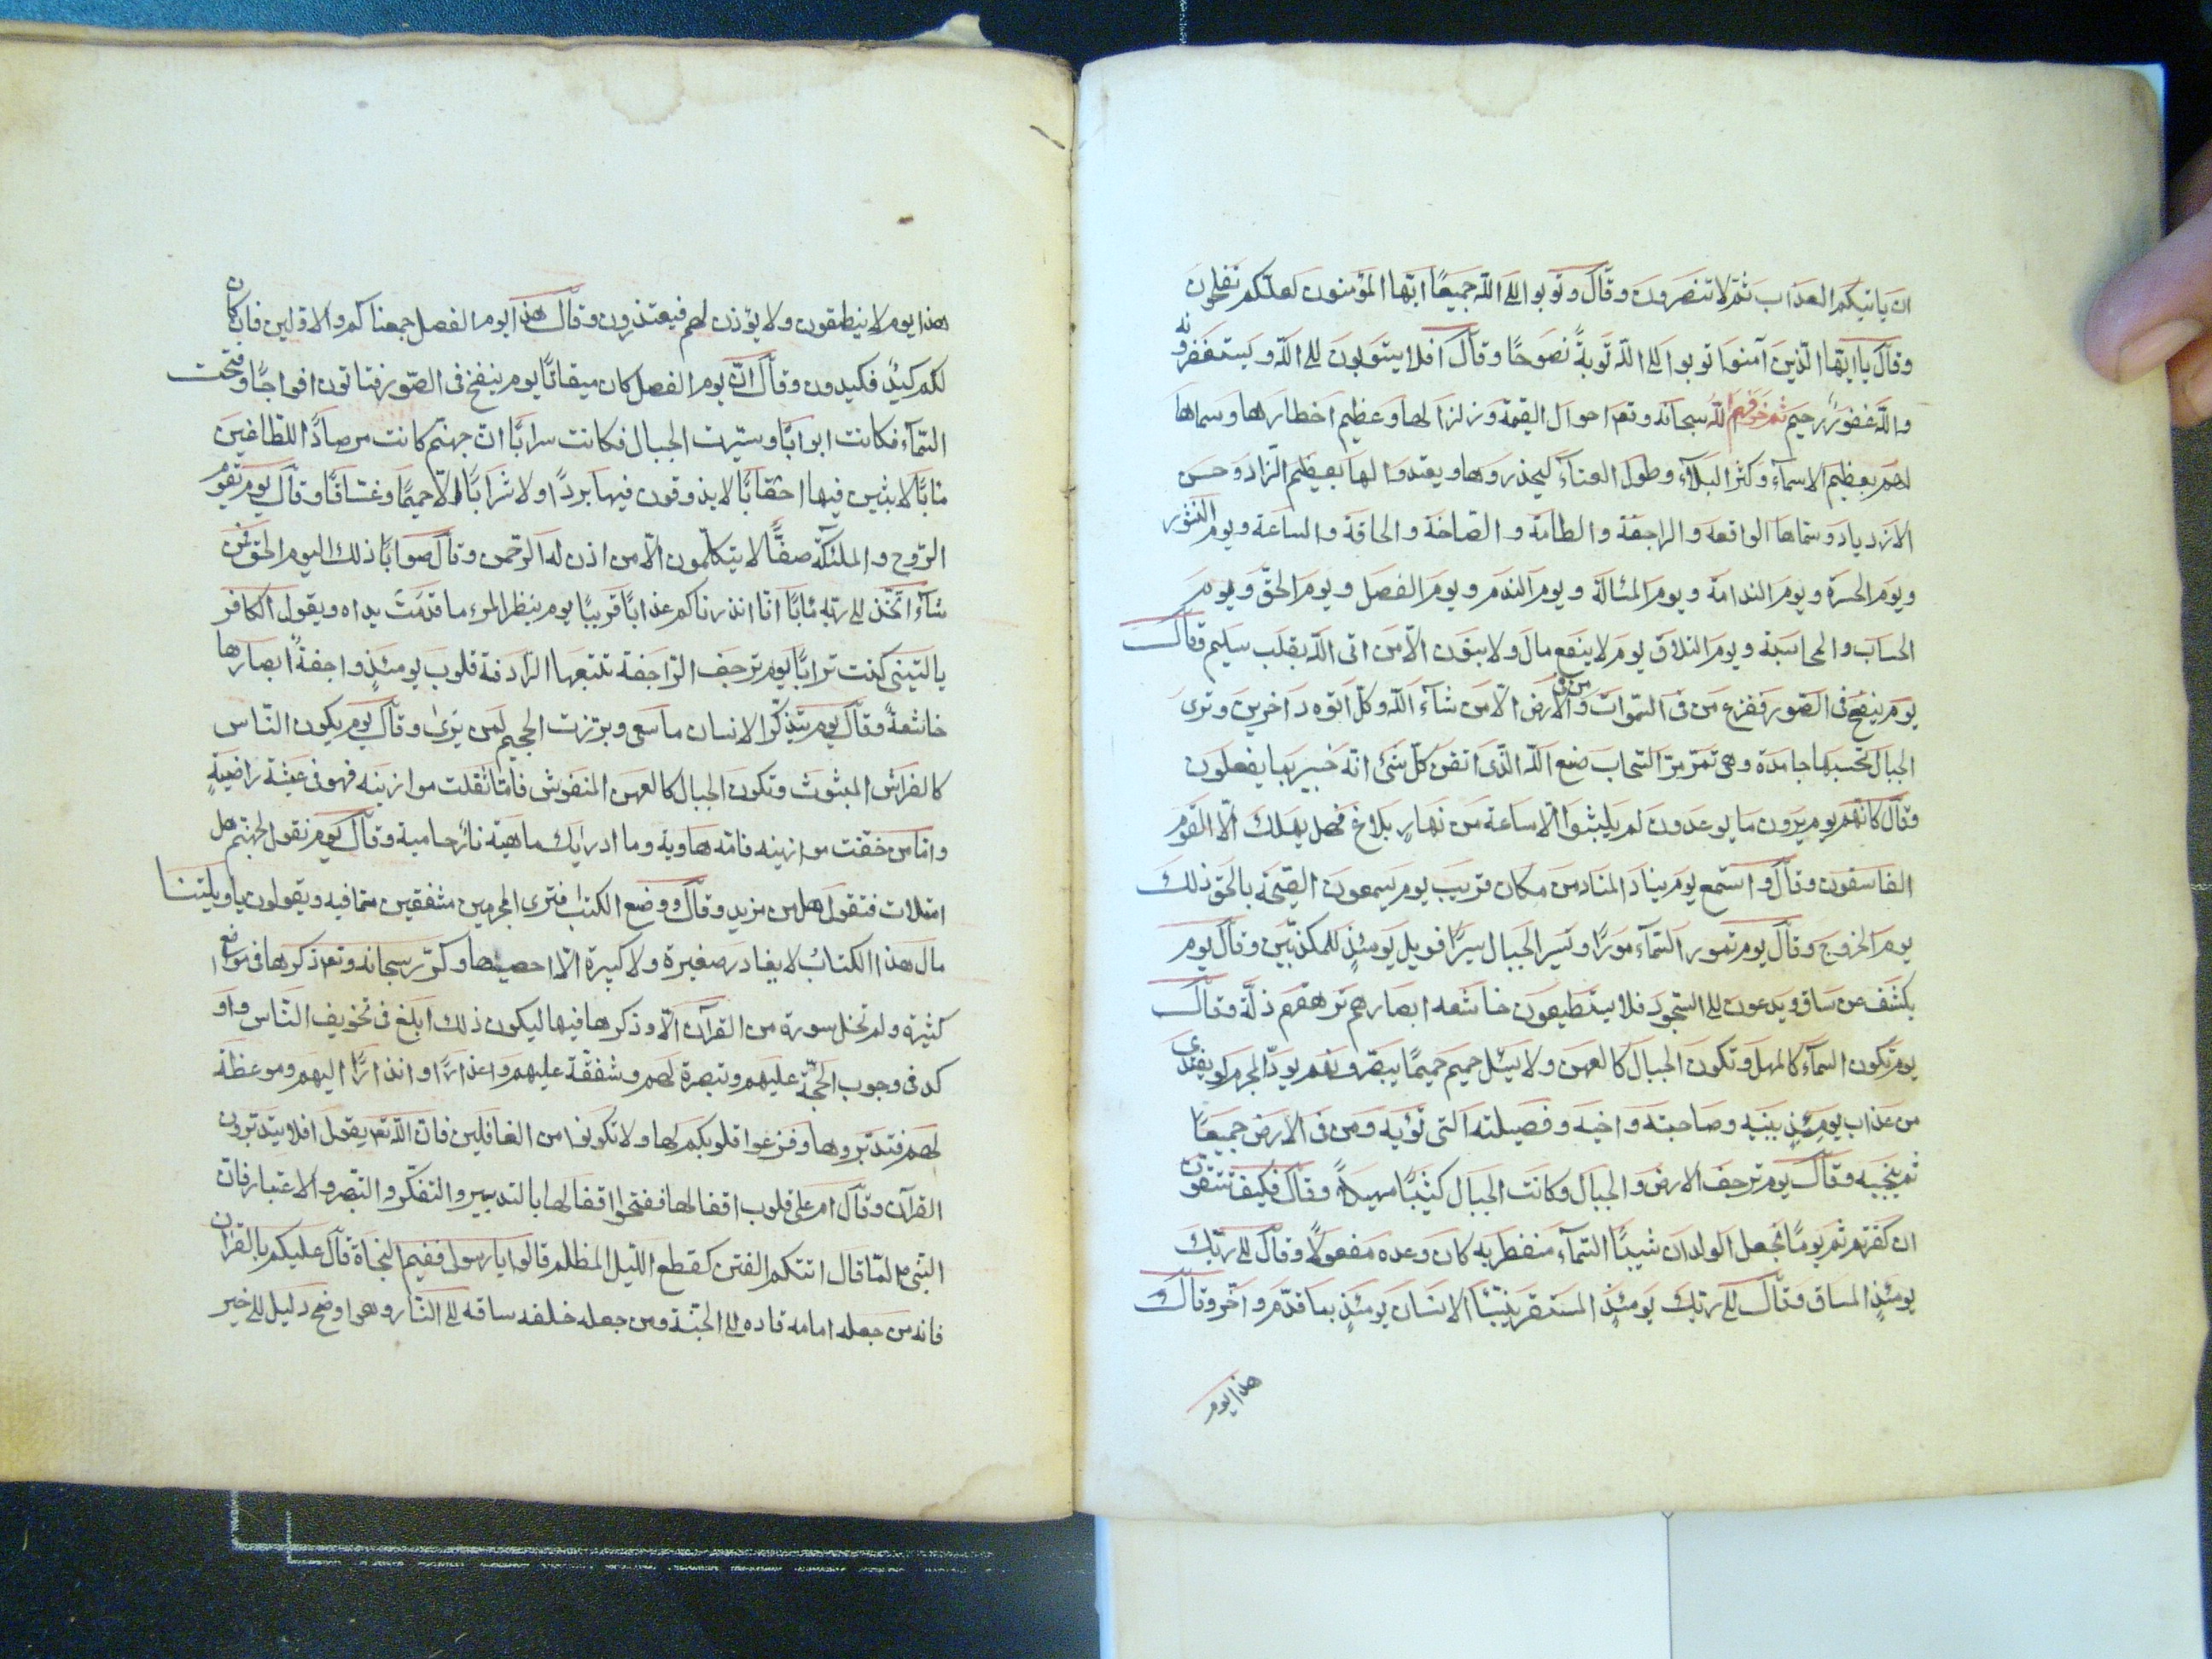 ان ياتيكم العذاب ثم لا تنصرون وقال وتوبوا الى الله جميعًا ايّها المؤمنون لعلّكم تفلحون
وقال يا ايّها الّذين آمنوا توبوا الى الله توبةً نصوحًا وقال افلا يتوبون الى الله ويستغفرونه
والله غفورٌ رحيم ثم خوّفهم الله سبحانه وتعا احوال القيمة وزلزالها وعظيم اخطارها وسماها
لهم بعظيم الاسماء وكثر البلاء وطول العناء ليحذروها ويعتدوا لها بعظيم الزاد وحسن
الازدياد وسماها الواقعة والراجفة والطامة والصاخة والحاقة والساعة ويوم النشور
ويوم الحسرة ويوم الندامة ويوم المسالة ويوم الندم ويوم الفصل ويوم الحقّ ويوم
الحساب والمحاسبة ويوم التلاق يوم لا ينفع مال ولا بنون الّا من اتى الله بقلب سليم وقال
يوم ينفخ فى الصّور ففزع من فى السّموات ومن فى الارض الّا من شاء الله وكلّ اتوه داخرين وترى
الجبال تحسبها جامدة وهى تمرّ مرّ السّحاب صنع الله الّذى اتقن كلّ شئ انّه خبير بما يفعلون
وقال كانّهم يوم يرون ما يوعدون لم يلبثوا الّا ساعة من نهار بلاغ فهل يهلك الّا القوم
الفاسقون وقال واستمع يوم يناد المناد من مكان قريب يوم يسمعون الصّيحة بالحقّ ذلك
يوم الخروج وقال يوم تمور السّماء مورًا وتسير الجبال سيرًا فويل يومئذٍ للمكذّبين وقال يوم
يكشف عن ساق ويدعون الى السّجود فلا يستطيعون خاشعه ابصارهم ترهقهم ذلّة وقال
يوم تكون السماء كالمهل وتكون الجبال كالعهن ولا يسئل حميم حميمًا يبصّرونهم يودّ المجرم لو يفتدى
من عذاب يومئذٍ ببنيه وصاحبته واخيه وفصيلته التى تؤيه ومن فى الارض جميعًا
ثم ينجيه وقال يوم ترجف الارض والجبال وكانت الجبال كثيبًا مهيلاً وقال فكيف تتّقون
ان كفرتم يومًا يجعل الولدان شيبًا السّماء منفطر به كان وعده مفعولاً وقال الى ربّك
يومئذٍ المساق وقال الى ربّك يومئذٍ المستقر ينبّئا الانسان يومئذٍ بما قدّم واخّر وقال
هذا يوم
هذا يوم لا ينطقون ولا يؤذن لهم فيعتذرون وقال هذا يوم الفصل جمعناكم والاوّلين فان كان
لكم كيدٌ فكيدون وقال انّ يوم الفصل كان ميقاتًا يوم ينفخ فى الصّور فتاتون افواجًا وفتحت
السّماء فكانت ابوابًا وسيّرت الجبال فكانت سرابًا انّ جهنّم كانت مرصادًا للطّاغين
مئابًا لابثين فيها احقابًا لا يذوقون فيها بردًا ولا شرابًا الّا حميمًا وغسّاقًا وقال يوم يقوم
الرّوح والملئكة صفًّا لا يتكلّمون الّا من اذن له الرّحمن وقال صوابًا ذلك اليوم الحق فمن
شاء اتّخذ الى ربّه مئابًا انّا انذرناكم عذابًا قريبًا يوم ينظر المرء ما قدّمت يداه ويقول الكافر
يا ليتنى كنت ترابًا يوم ترجف الرّاجفة تتبعها الرّادفة قلوب يومئذٍ واجفةً ابصارها
خاشعةً وقال يوم يتذكّر الانسان ما سعى وبرّزت الجحيم لمن يرى وقال يوم يكون النّاس
كالفراش المبثوث وتكون الجبال كالعهن المنفوش فامّا ثقلت موازينه فهو فى عيشة راضيةٍ
وامّا من خفّت موازينه فامّه هاوية وما ادريك ماهية نار حامية وقال يوم نقول لجهنّم هل
امتلات فتقول هل من مزيد وقال ووضع الكتاب فترى المجرمين مشفقين ممّا فيه ويقولون يا ويلتنا
مال هذا الكتاب لا يغادر صغيرة ولا كبيرة الّا احصيها وكرّر سبحانه وتعا ذكرها فى مواضع
كثيرة ولم تخل سورة من القرآن الّا وذكرها فيها ليكون ذلك ابلغ فى تخويف النّاس واو
كد فى وجوب الحجّة عليهم وتبصرة لهم وشفقة عليهم واعذارًا وانذارًا اليهم وموعظة
لهم فتدبّروها وفزعوا قلوبكم لها ولا تكونوا من الغافلين فانّ الله تعا يقول افلا يتدبّرون
القرآن وقال ام على قلوب اقفالها ففتحوا اقفالها بالتدبير والتفكّر والتبصر والاعتبار فانّ
النّبى لمّا قال اتتكم الفتن كقطع اللّيل المظلم قالوا يا رسول ففيم النجاة قال عليكم بالقران
فانه من جعله امامه قاده الى الجنّة ومن جعله خلفه ساقه الى النّار وهى اوضح دليل الى خير